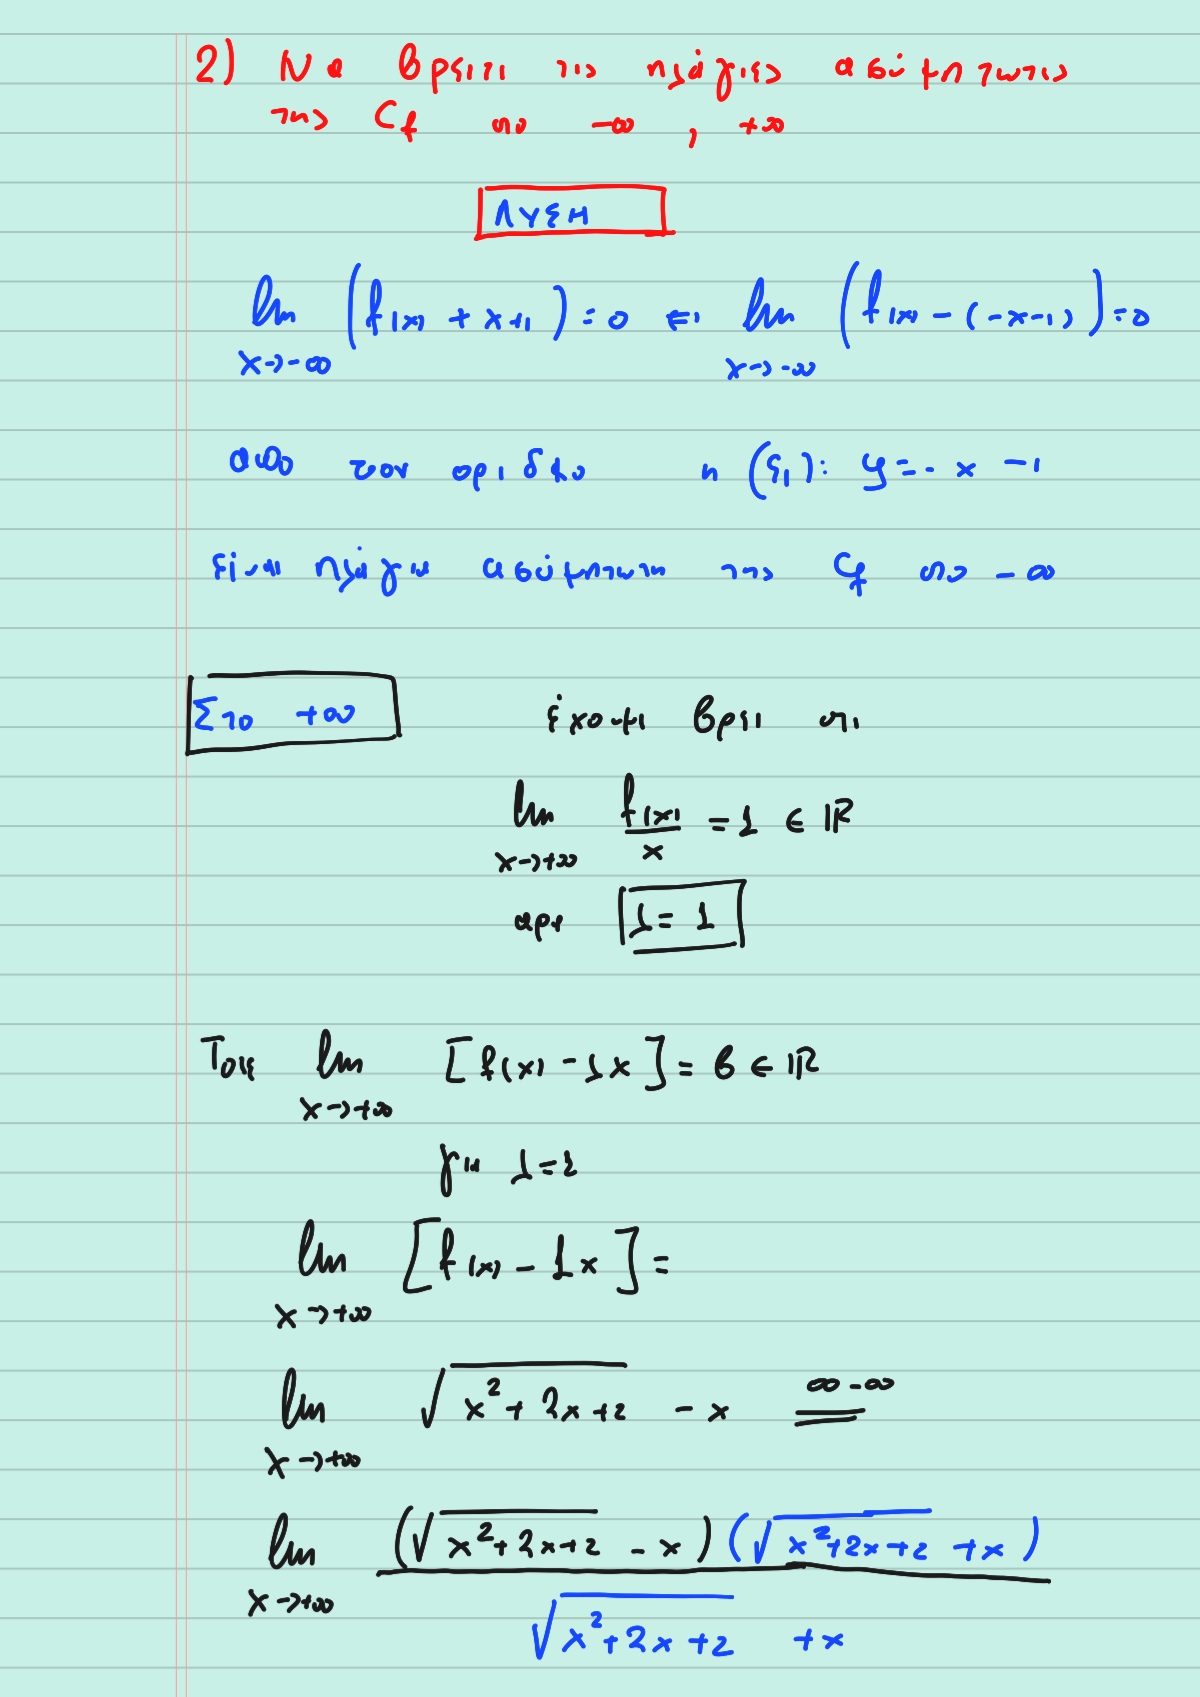 2) Να βρειτε τις πλάγιες ασύμπτωτες
της Cf στο -∞ , +∞
ΛΥΣΗ
lim (f(x) + x+1) = 0 ⇔ lim (f(x) - (-x-1)) = 0
x→-∞ x→-∞
απο τον ορισμο η (ε1): y = -x -1
είναι πλάγια ασύμπτωτη της Cf στο -∞
Στο +∞ έχουμε βρει οτι
lim f(x)/x = 1 ∈ ℝ
x→+∞
αρα λ = 1
Τοτε lim [f(x) - λx] = β ∈ ℝ
x→+∞
για λ=1
lim [f(x) - 1x] =
x→+∞
lim √(x²+2x+2) - x ∞-∞
x→+∞
lim (√(x²+2x+2) - x)(√(x²+2x+2) + x)
x→+∞
√(x²+2x+2) + x